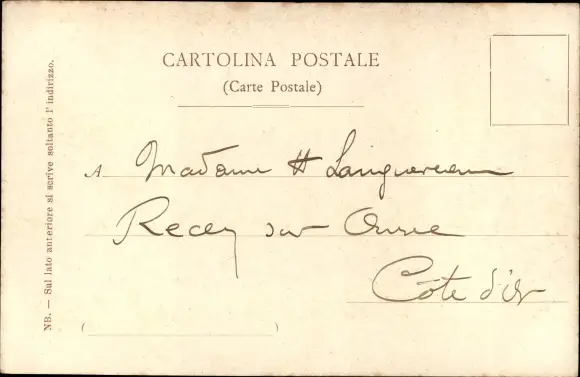 CARTOLINA POSTALE
(Carte Postale)
A Madame H
Recey sur Ource
Côte d'Or
NB. — Sul lato anteriore si scrive soltanto l'indirizzo.